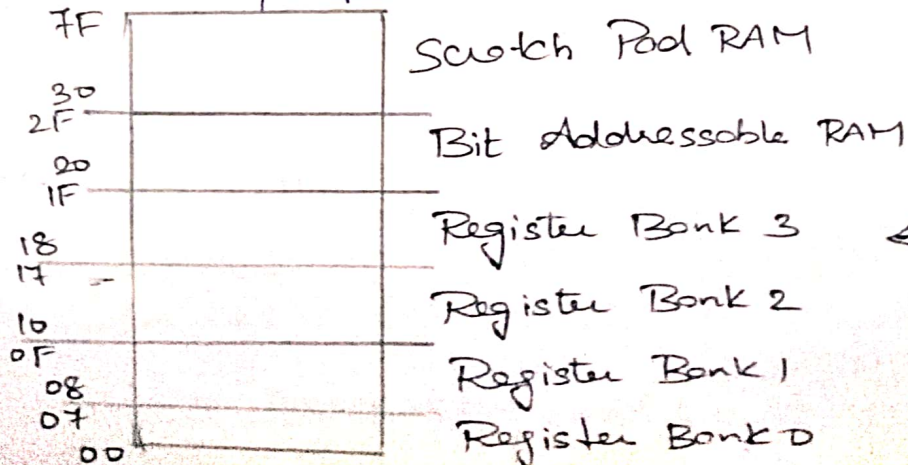 7F
Scratch Pad RAM
30
2F
Bit Addressable RAM
20
1F
Register Bank 3
18
17
Register Bank 2
10
0F
Register Bank 1
08
07
Register Bank 0
00